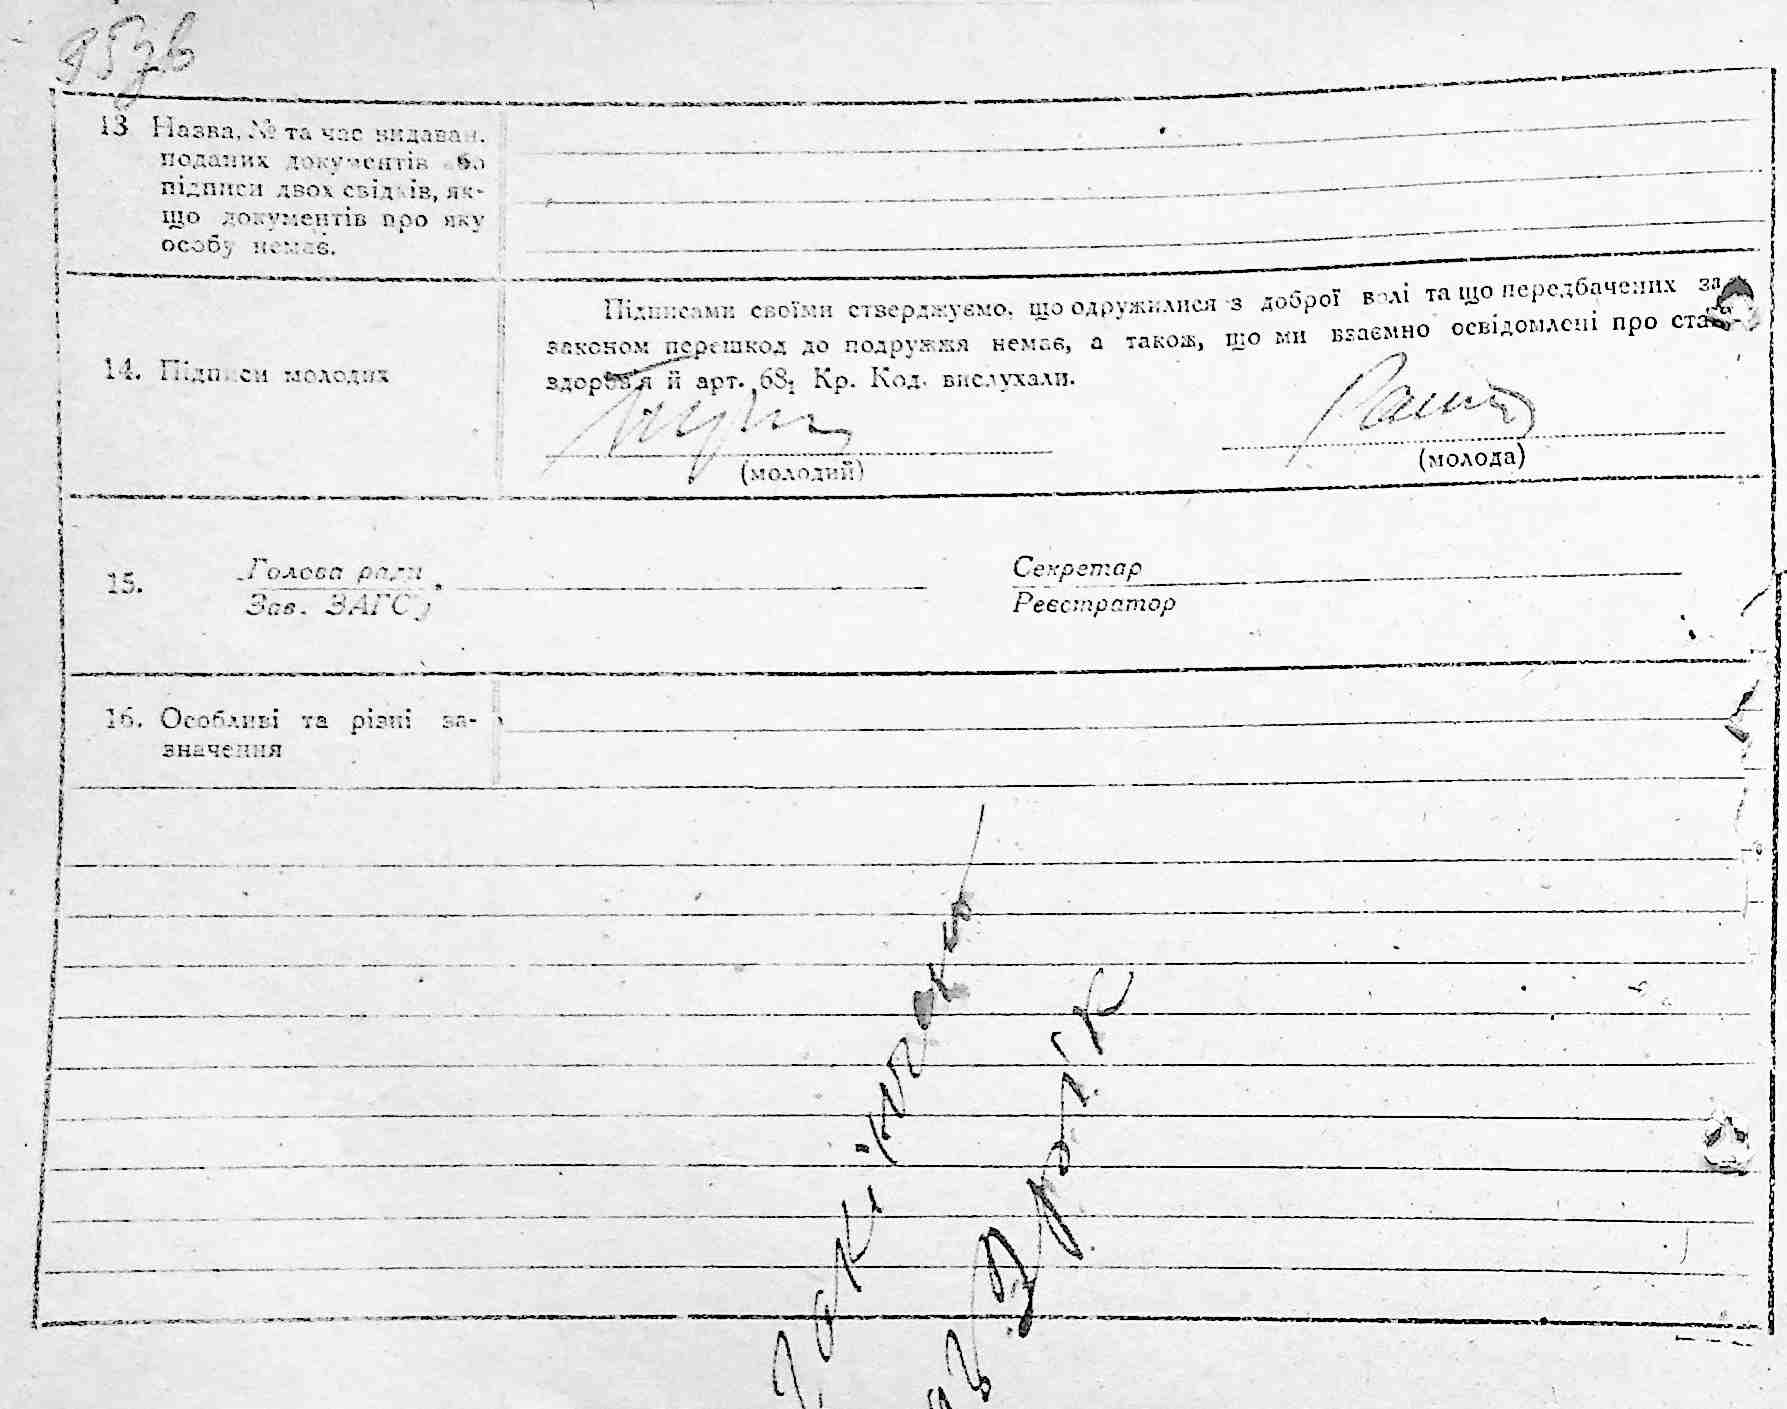 95зв
13 Назва, № та час видаван.
поданих документів або
підписи двох свідків, як-
що документів про яку
особу немає.
Підписами своїми стверджуємо, що одружилися з доброї волі та що передбачених за
законом перешкод до подружжя немає, а також, що ми взаємно освідомлені про стан
здоров'я й арт. 68, Кр. Код. вислухали.
14. Підписи молодих
(молодий)
(молода)
15. Голова ради
Зав. ЗАГСу
Секретар
Реєстратор
16. Особливі та різні за-
значення
Закінчено
рік